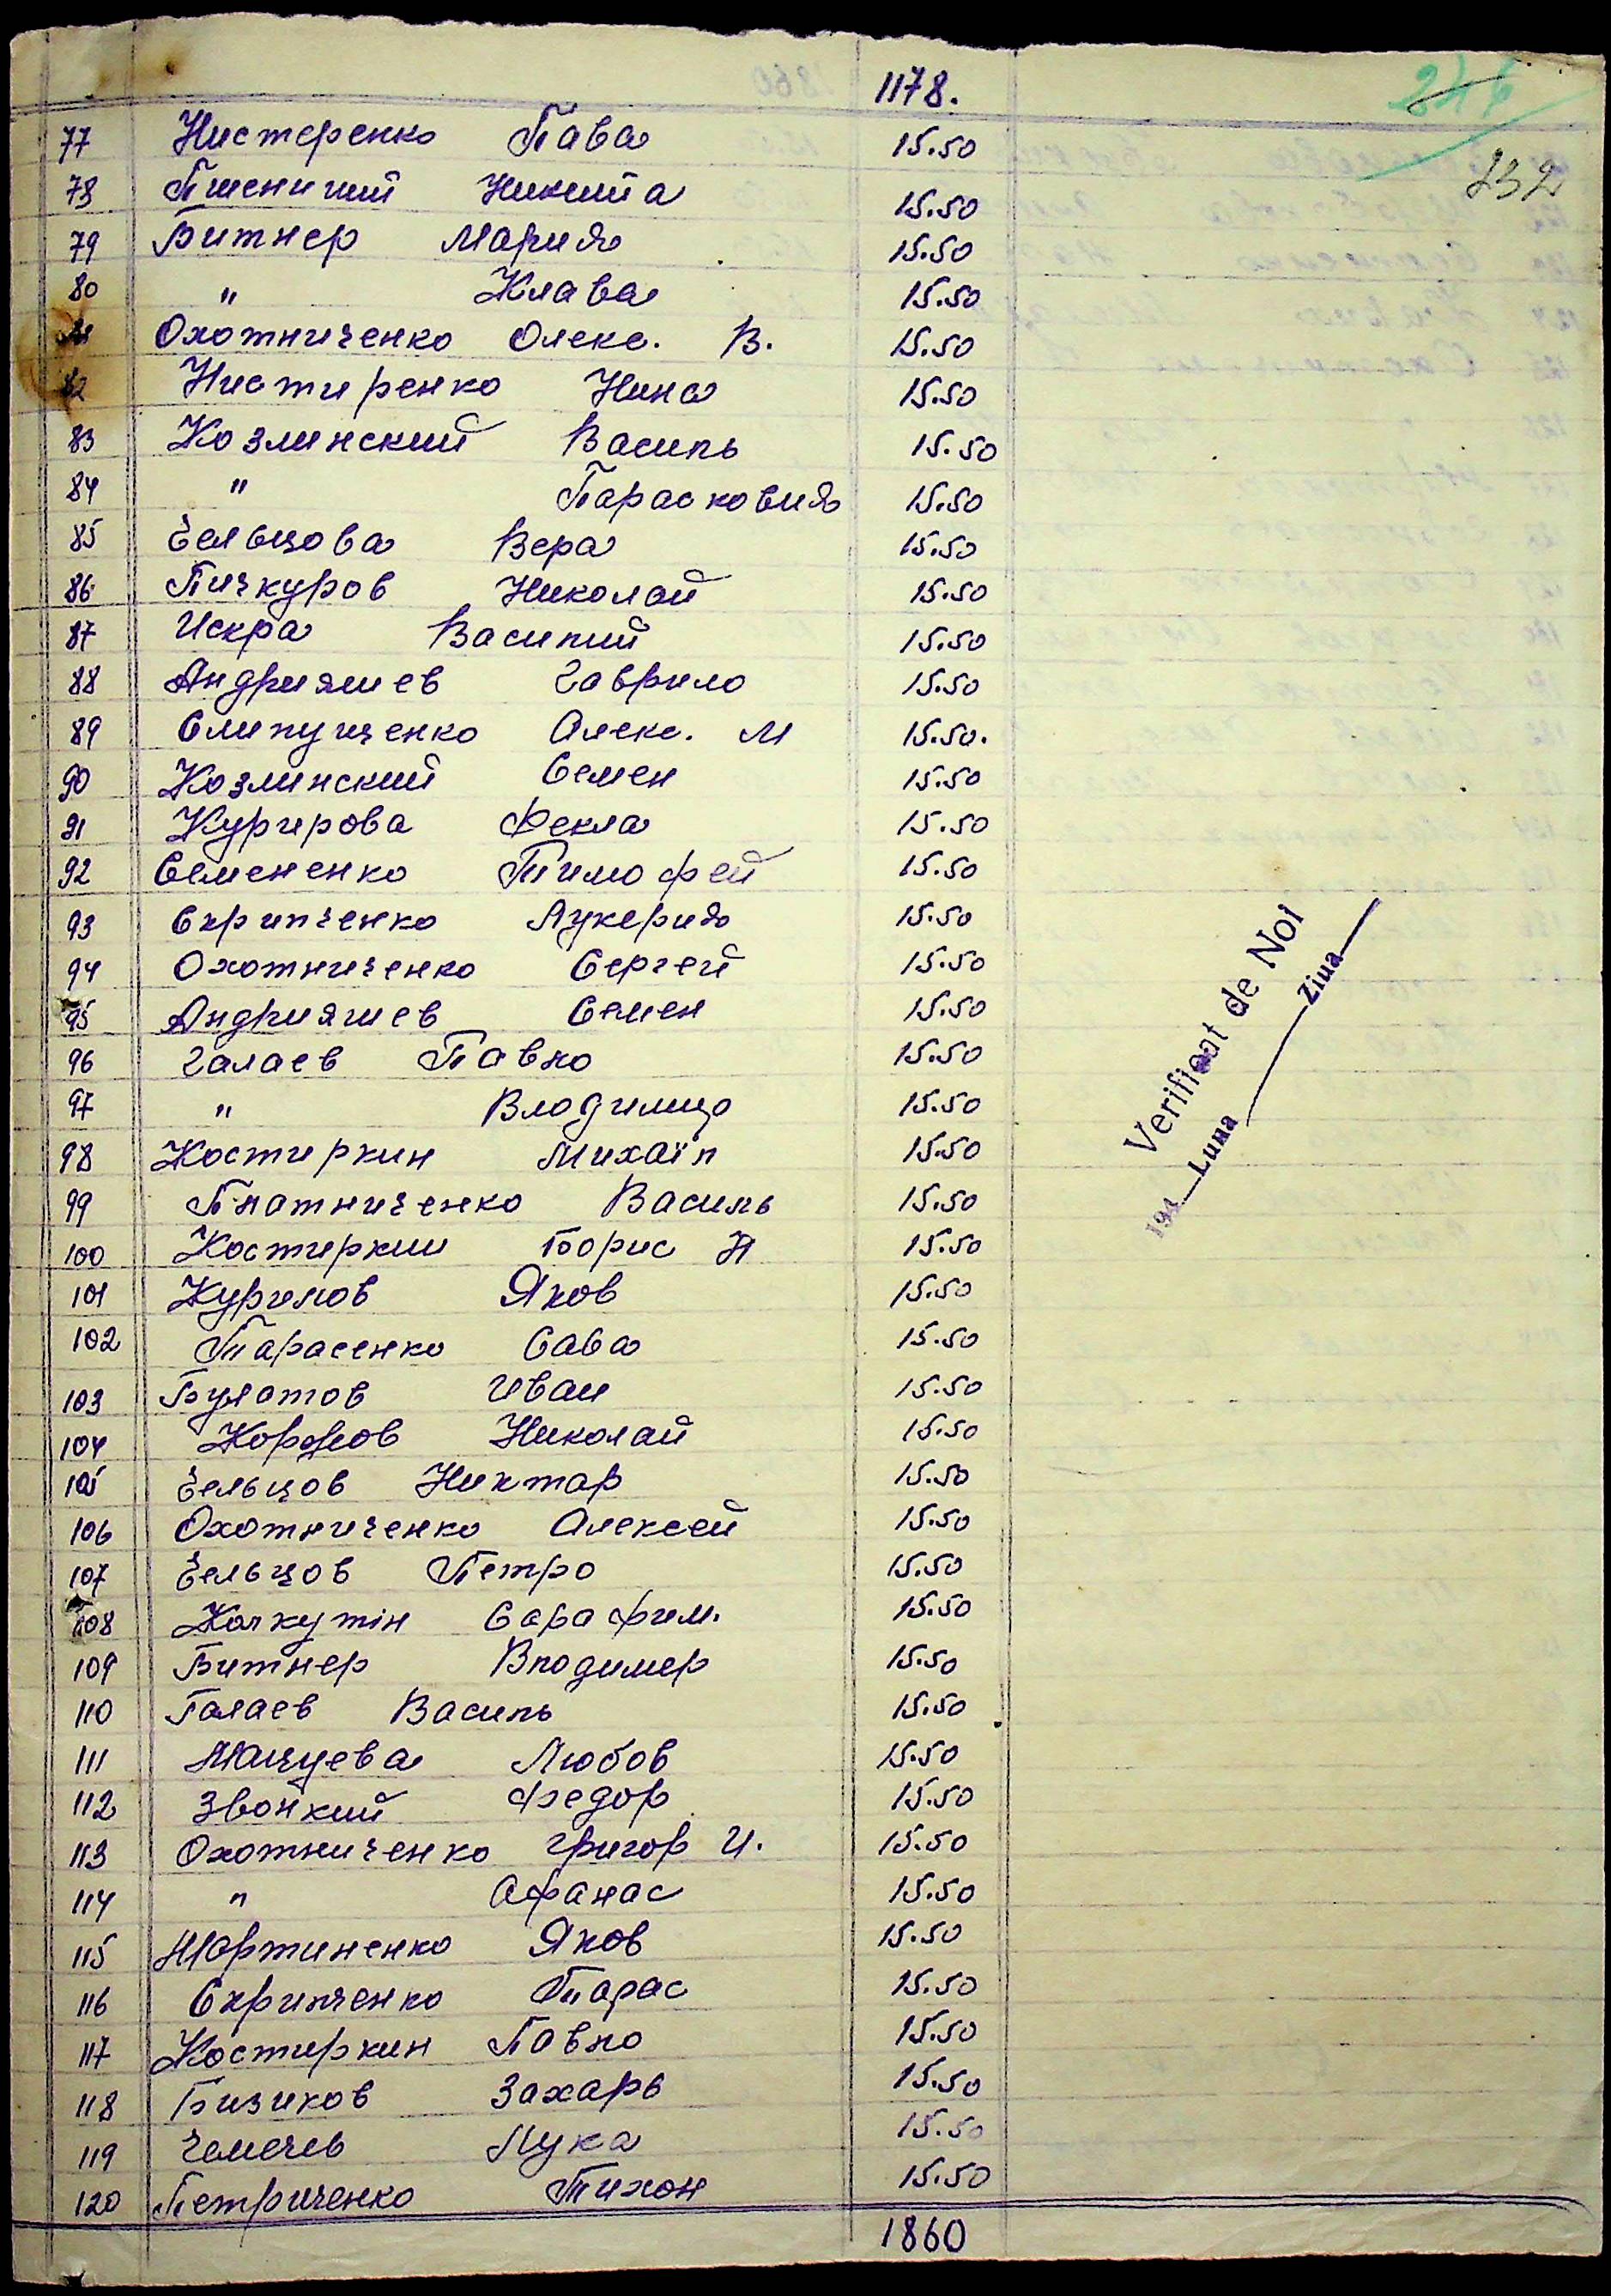 1178.
246
232
77 Нистеренко Пава 15.50
78 Пшеничний Никита 15.50
79 Битнер Мария 15.50
80 " Клава 15.50
81 Охотниченко Олекс. В. 15.50
82 Нистиренко Нина 15.50
83 Козлинский Василь 15.50
84 " Парасковия 15.50
85 Ельцова Вера 15.50
86 Пичкуров Николай 15.50
87 Искра Василий 15.50
88 Андрияшев Гаврило 15.50
89 Слипущенко Алекс. М 15.50.
90 Козлинский Семен 15.50
91 Фекла 15.50
92 Семененко Тимофей 15.50
93 Скрипченко Лукерия 15.50
94 Охотниченко Сергей 15.50
95 Андрияшев Семен 15.50
96 Галаев Павло 15.50
97 " Владимир 15.50
98 Костиркин Михаїл 15.50
99 Платниченко Василь 15.50
100 Костиркин Борис Н 15.50
101 Курилов Яков 15.50
102 Тарасенко Сава 15.50
103 Булатов Иван 15.50
104 Коржов Николай 15.50
105 Ельцов Никтар 15.50
106 Охотниченко Алексей 15.50
107 Ельцов Петро 15.50
108 Колкутін Сарафим. 15.50
109 Битнер Владимер 15.50
110 Галаев Василь 15.50
111 Мацуева Любов 15.50
112 Звонкий Федор 15.50
113 Охотниченко Григор И. 15.50
114 " Афанас 15.50
115 Мартиненко Яков 15.50
116 Скрипченко Тарас 15.50
117 Костиркин Павло 15.50
118 Бизиков Захарь 15.50
119 Лука 15.50
120 Петриченко Тихон 15.50
1860
Verificat de Noi
194 Luna Ziua